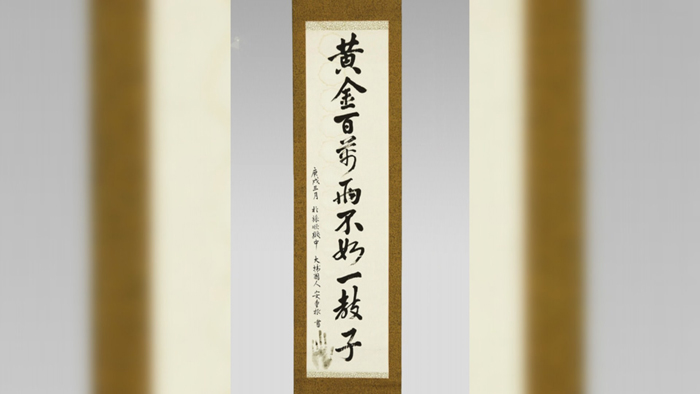 黄金百萬兩不如一敎子
庚戌三月 於旅順獄中 大韓國人 安重根 書